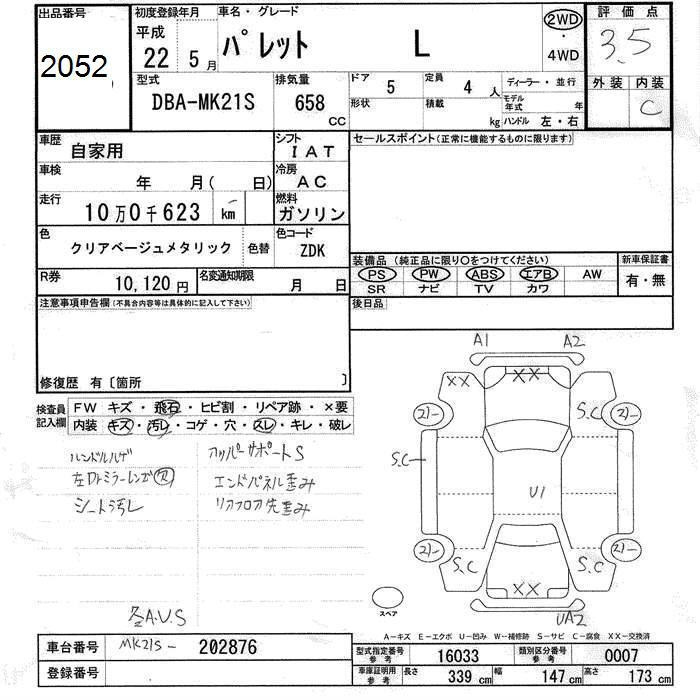 出品番号
2052
初度登録年月
平成
22 5月
車名・グレード
パレット L
2WD
・
4WD
評価点
3.5
型式
DBA-MK21S
排気量
658
CC
ドア
5
定員
4 人
形状
積載
kg
ディーラー・並行
モデル年式 年
ハンドル 左・右
外装 内装
C
車歴
自家用
シフト
IAT
車検
年 月( 日)
冷房
AC
走行
10万0千623 km
燃料
ガソリン
色
クリアベージュメタリック
色替
色コード
ZDK
R券
10,120円
名変通知期限
月 日
セールスポイント(正常に機能するものに限ります)
装備品(純正品に限り○をつけてください)
PS PW ABS エアB AW
SR ナビ TV カワ
新車保証書
有・無
注意事項申告欄(不具合内容等は具体的に記入して下さい)
後日品
修復歴 有〔箇所 〕
検査員記入欄
FW キズ・飛石・ヒビ割・リペア跡・×要
内装 キズ・汚レ・コゲ・穴・スレ・キレ・破レ
ハンドルハゲ
左ドアミラーレンズ
シート汚レ
アッパーサポートS
エンドパネル歪み
リアフロア先歪み
A.U.S
A1 A2
XX XX
21- S.C 21-
S.C
U1
21- 21-
S.C XX S.C
UA2
スペア
A-キズ E-エクボ U-凹み W-補修跡 S-サビ C-腐食 XX-交換済
車台番号
MK21S- 202876
登録番号
型式指定番号
参考
16033
類別区分番号
参考
0007
車庫証明用
参考
長さ 339 cm
幅 147 cm
高さ 173 cm